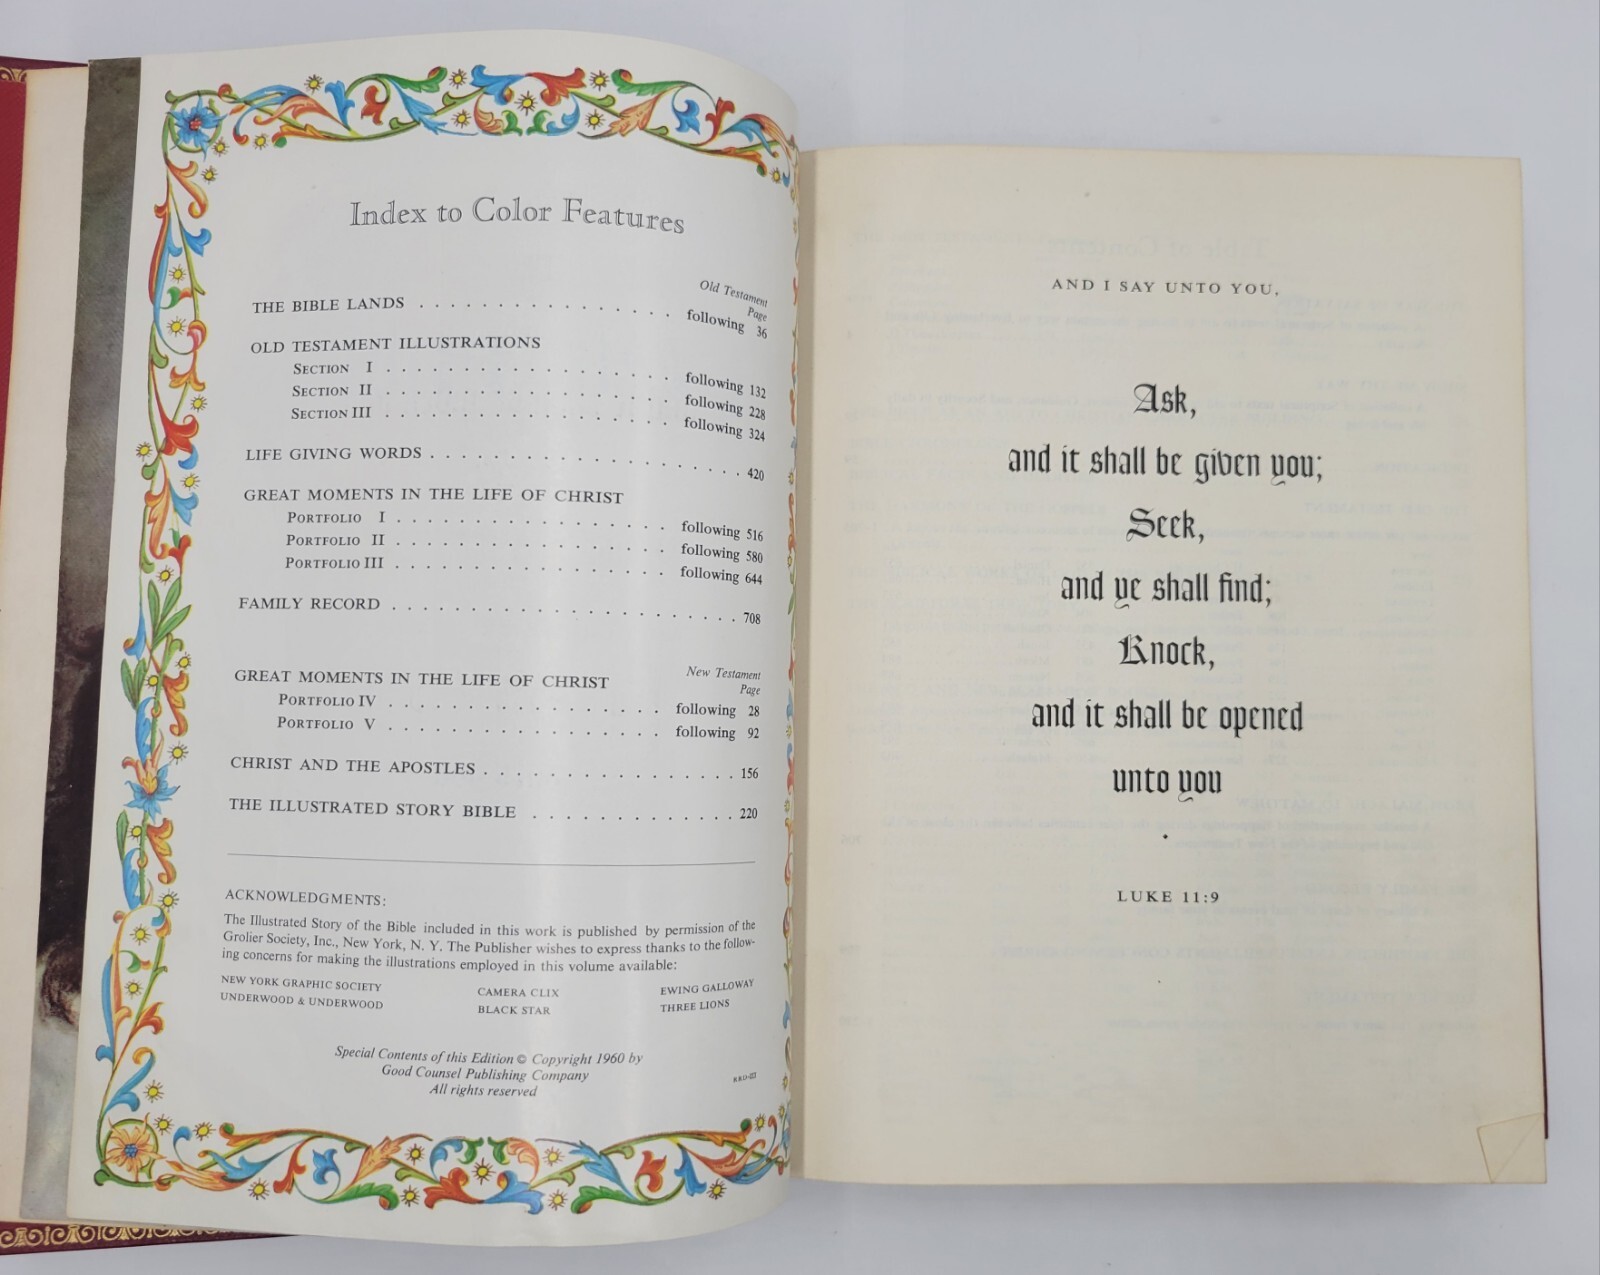 Index to Color Features
Old Testament
Page
THE BIBLE LANDS . . . . . . . . . . . . . . . . . following 36
OLD TESTAMENT ILLUSTRATIONS
SECTION I . . . . . . . . . . . . . . . . . . . following 132
SECTION II . . . . . . . . . . . . . . . . . . . following 228
SECTION III . . . . . . . . . . . . . . . . . . . following 324
LIFE GIVING WORDS . . . . . . . . . . . . . . . . . . . . 420
GREAT MOMENTS IN THE LIFE OF CHRIST
PORTFOLIO I . . . . . . . . . . . . . . . . . . following 516
PORTFOLIO II . . . . . . . . . . . . . . . . . . following 580
PORTFOLIO III . . . . . . . . . . . . . . . . . . following 644
FAMILY RECORD . . . . . . . . . . . . . . . . . . . . . . 708
New Testament
Page
GREAT MOMENTS IN THE LIFE OF CHRIST
PORTFOLIO IV . . . . . . . . . . . . . . . . . . following 28
PORTFOLIO V . . . . . . . . . . . . . . . . . . following 92
CHRIST AND THE APOSTLES . . . . . . . . . . . . . . . . 156
THE ILLUSTRATED STORY BIBLE . . . . . . . . . . . . . 220
ACKNOWLEDGMENTS:
The Illustrated Story of the Bible included in this work is published by permission of the
Grolier Society, Inc., New York, N. Y. The Publisher wishes to express thanks to the follow-
ing concerns for making the illustrations employed in this volume available:
NEW YORK GRAPHIC SOCIETY CAMERA CLIX EWING GALLOWAY
UNDERWOOD & UNDERWOOD BLACK STAR THREE LIONS
Special Contents of this Edition © Copyright 1960 by
Good Counsel Publishing Company
All rights reserved
AND I SAY UNTO YOU,
Ask,
and it shall be given you;
Seek,
and ye shall find;
Knock,
and it shall be opened
unto you
LUKE 11:9